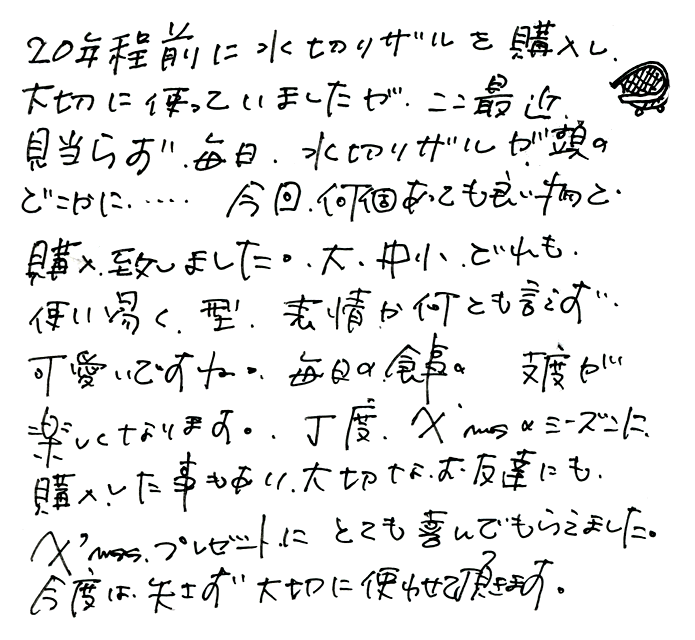 20年程前に水切りザルを購入し、
大切に使っていましたが、ここ最近、
見当らず、毎日、水切りザルが頭の
どこかに…… 今回、何個あっても良い物で
購入致しました。大、中小、どれも、
使い易く、型、表情が何とも言えず、
可愛いですね。毎日の食事の 支度が
楽しくなります。丁度、X'masのシーズンに、
購入した事もあり、大切な、お友達にも、
X'mas、プレゼント、にとても喜んでもらえました。
今度は、失さず大切に使わせて頂きます。